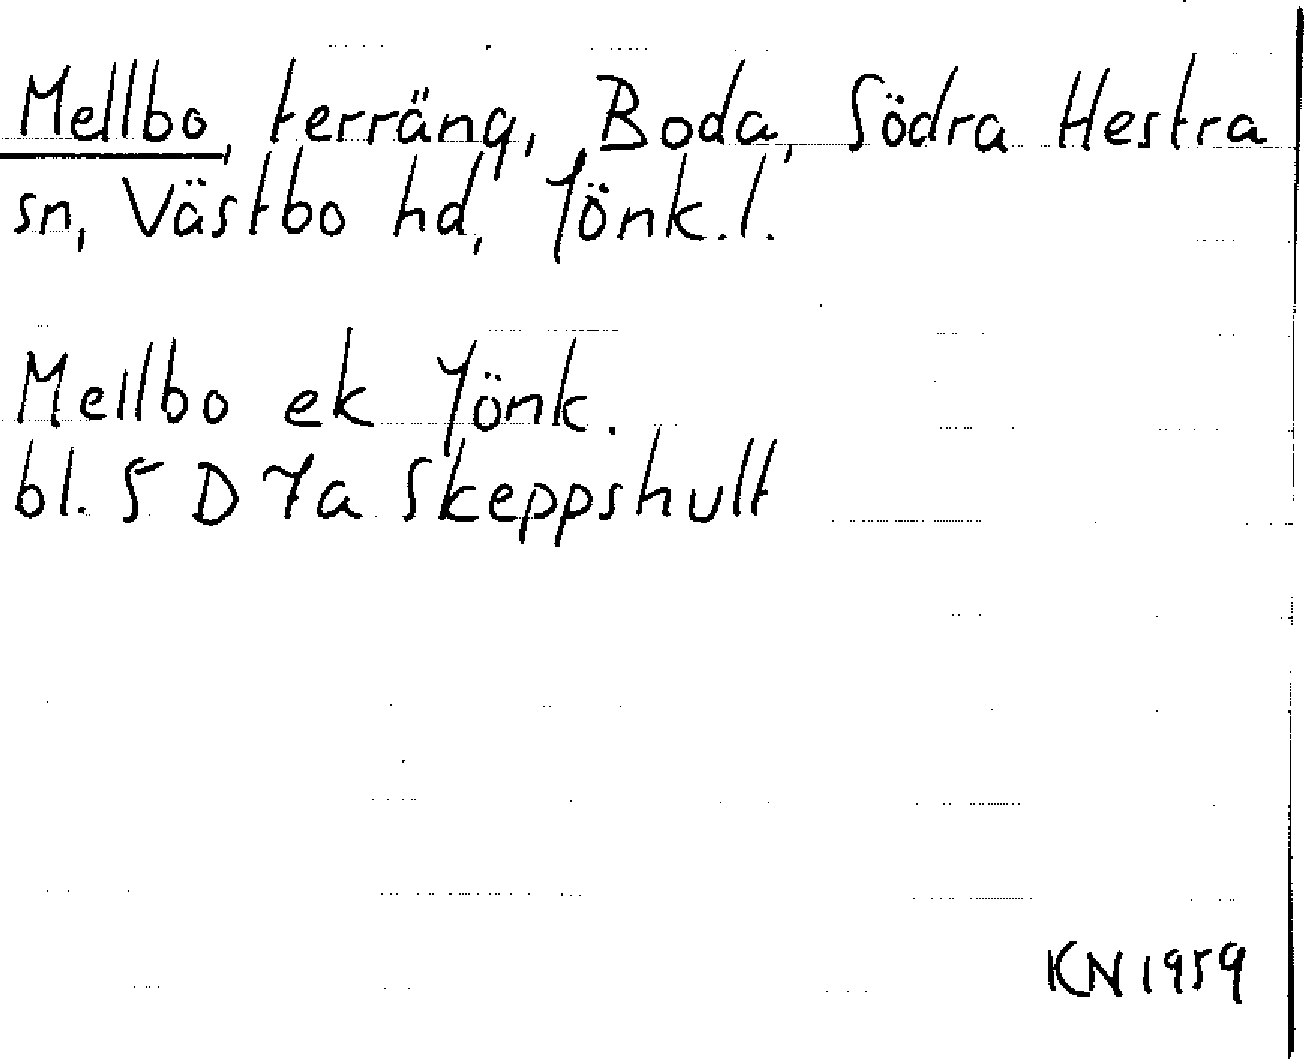 Mellbo, terräng, Boda, Södra Hestra
sn, Västbo hd, Jönk.l.
Mellbo ek Jönk.
bl. 5 D 7a Skeppshult
KN 1959